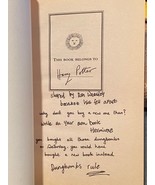 THIS BOOK BELONGS TO
Harry Potter
shared by Ron Weasley
because his fell apart
why don't you buy a new one then?
write in your own book
Hermione
you bought all those dungbombs
on Saturday. you could have
bought a new book instead
Dungbombs rule